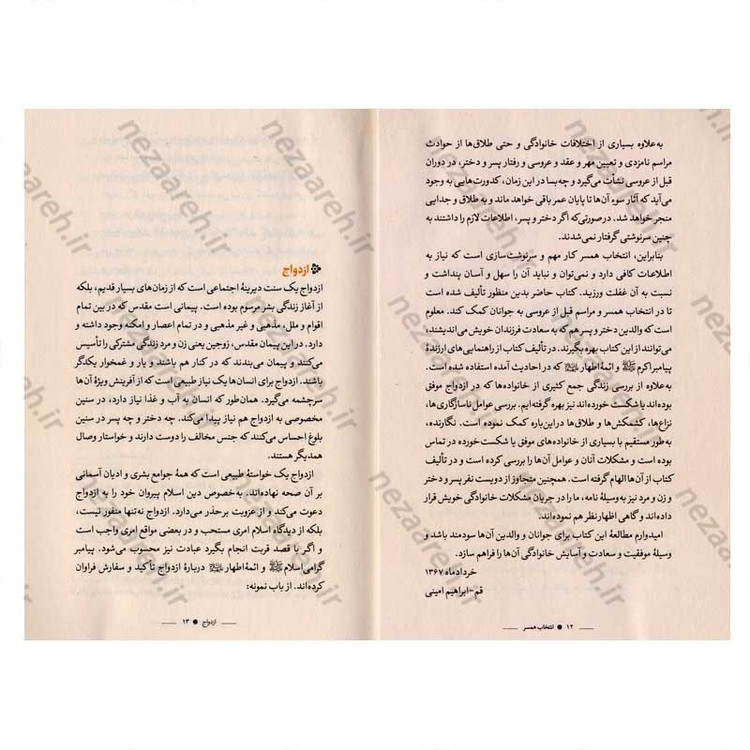 به‌علاوه بسیاری از اختلافات خانوادگی و حتی طلاق‌ها از حوادث
مراسم نامزدی و تعیین مهر و عقد و عروسی و رفتار پسر و دختر، در دوران
قبل از عروسی نشأت می‌گیرد و چه بسا در این زمان، کدورت‌هایی به وجود
می‌آید که آثار سوء آن‌ها تا پایان عمر باقی خواهد ماند و به طلاق و جدایی
منجر خواهد شد. درصورتی‌که اگر دختر و پسر، اطلاعات لازم را داشتند به
چنین سرنوشتی گرفتار نمی‌شدند.
بنابراین، انتخاب همسر کار مهم و سرنوشت‌سازی است که نیاز به
اطلاعات کافی دارد و نمی‌توان و نباید آن را سهل و آسان پنداشت و
نسبت به آن غفلت ورزید. کتاب حاضر بدین منظور تألیف شده است
تا در انتخاب همسر و مراسم قبل از عروسی به جوانان کمک کند. معلوم
است که والدین دختر و پسر هم که به سعادت فرزندان خویش می‌اندیشند،
می‌توانند از این کتاب بهره بگیرند. در تألیف کتاب از راهنمایی‌های ارزندهٔ
پیامبر اکرم ﷺ و ائمهٔ اطهار که در احادیث آمده استفاده شده است.
به‌علاوه از بررسی زندگی جمع کثیری از خانواده‌ها که در ازدواج موفق
بوده‌اند یا شکست خورده‌اند نیز بهره گرفته‌ایم. بررسی عوامل ناسازگاری‌ها،
نزاع‌ها، کشمکش‌ها و طلاق‌ها در این‌باره کمک نموده است. نگارنده،
به‌طور مستقیم با بسیاری از خانواده‌های موفق یا شکست خورده در تماس
بوده است و مشکلات آنان و عوامل آن‌ها را بررسی کرده است و در تألیف
کتاب از آن‌ها الهام گرفته است. همچنین متجاوز از دویست نفر پسر و دختر
و زن و مرد نیز به‌وسیلهٔ نامه، ما را در جریان مشکلات خانوادگی خویش قرار
داده‌اند و گاهی اظهارنظر هم نموده‌اند.
امیدوارم مطالعهٔ این کتاب برای جوانان و والدین آن‌ها سودمند باشد و
وسیلهٔ موفقیت و سعادت و آسایش خانوادگی آن‌ها را فراهم سازد.
خرداد ماه ۱۳۶۷
قم-ابراهیم امینی
۱۲ ● انتخاب همسر
ازدواج
ازدواج یک سنت دیرینهٔ اجتماعی است که از زمان‌های بسیار قدیم، بلکه
از آغاز زندگی بشر مرسوم بوده است. پیمانی است مقدس که در بین تمام
اقوام و ملل، مذهبی و غیر مذهبی و در تمام اعصار و امکنه وجود داشته و
دارد. در این پیمان مقدس، زوجین یعنی زن و مرد زندگی مشترکی را تأسیس
می‌کنند و پیمان می‌بندند که در کنار هم باشند و یار و غمخوار یکدگر
باشند. ازدواج برای انسان‌ها یک نیاز طبیعی است که از آفرینش ویژهٔ آن‌ها
سرچشمه می‌گیرد. همان‌طور که انسان به آب و غذا نیاز دارد، در سنین
مخصوصی به ازدواج هم نیاز پیدا می‌کند. چه دختر و چه پسر در سنین
بلوغ احساس می‌کنند که جنس مخالف را دوست دارند و خواستار وصال
همدیگر هستند.
ازدواج یک خواستهٔ طبیعی است که همهٔ جوامع بشری و ادیان آسمانی
بر آن صحه نهاده‌اند. به‌خصوص دین اسلام پیروان خود را به ازدواج
دعوت می‌کند و از عزوبت برحذر می‌دارد. ازدواج نه‌تنها منفور نیست،
بلکه از دیدگاه اسلام امری مستحب و در بعضی مواقع امری واجب است
و اگر با قصد قربت انجام بگیرد عبادت نیز محسوب می‌شود. پیامبر
گرامی اسلام ﷺ و ائمهٔ اطهار دربارهٔ ازدواج تأکید و سفارش فراوان
کرده‌اند. از باب نمونه:
ازدواج ● ۱۳
nezaareh.ir
nezaareh.ir
nezaareh.ir
nezaareh.ir
nezaareh.ir
nezaareh.ir
nezaareh.ir
nezaareh.ir